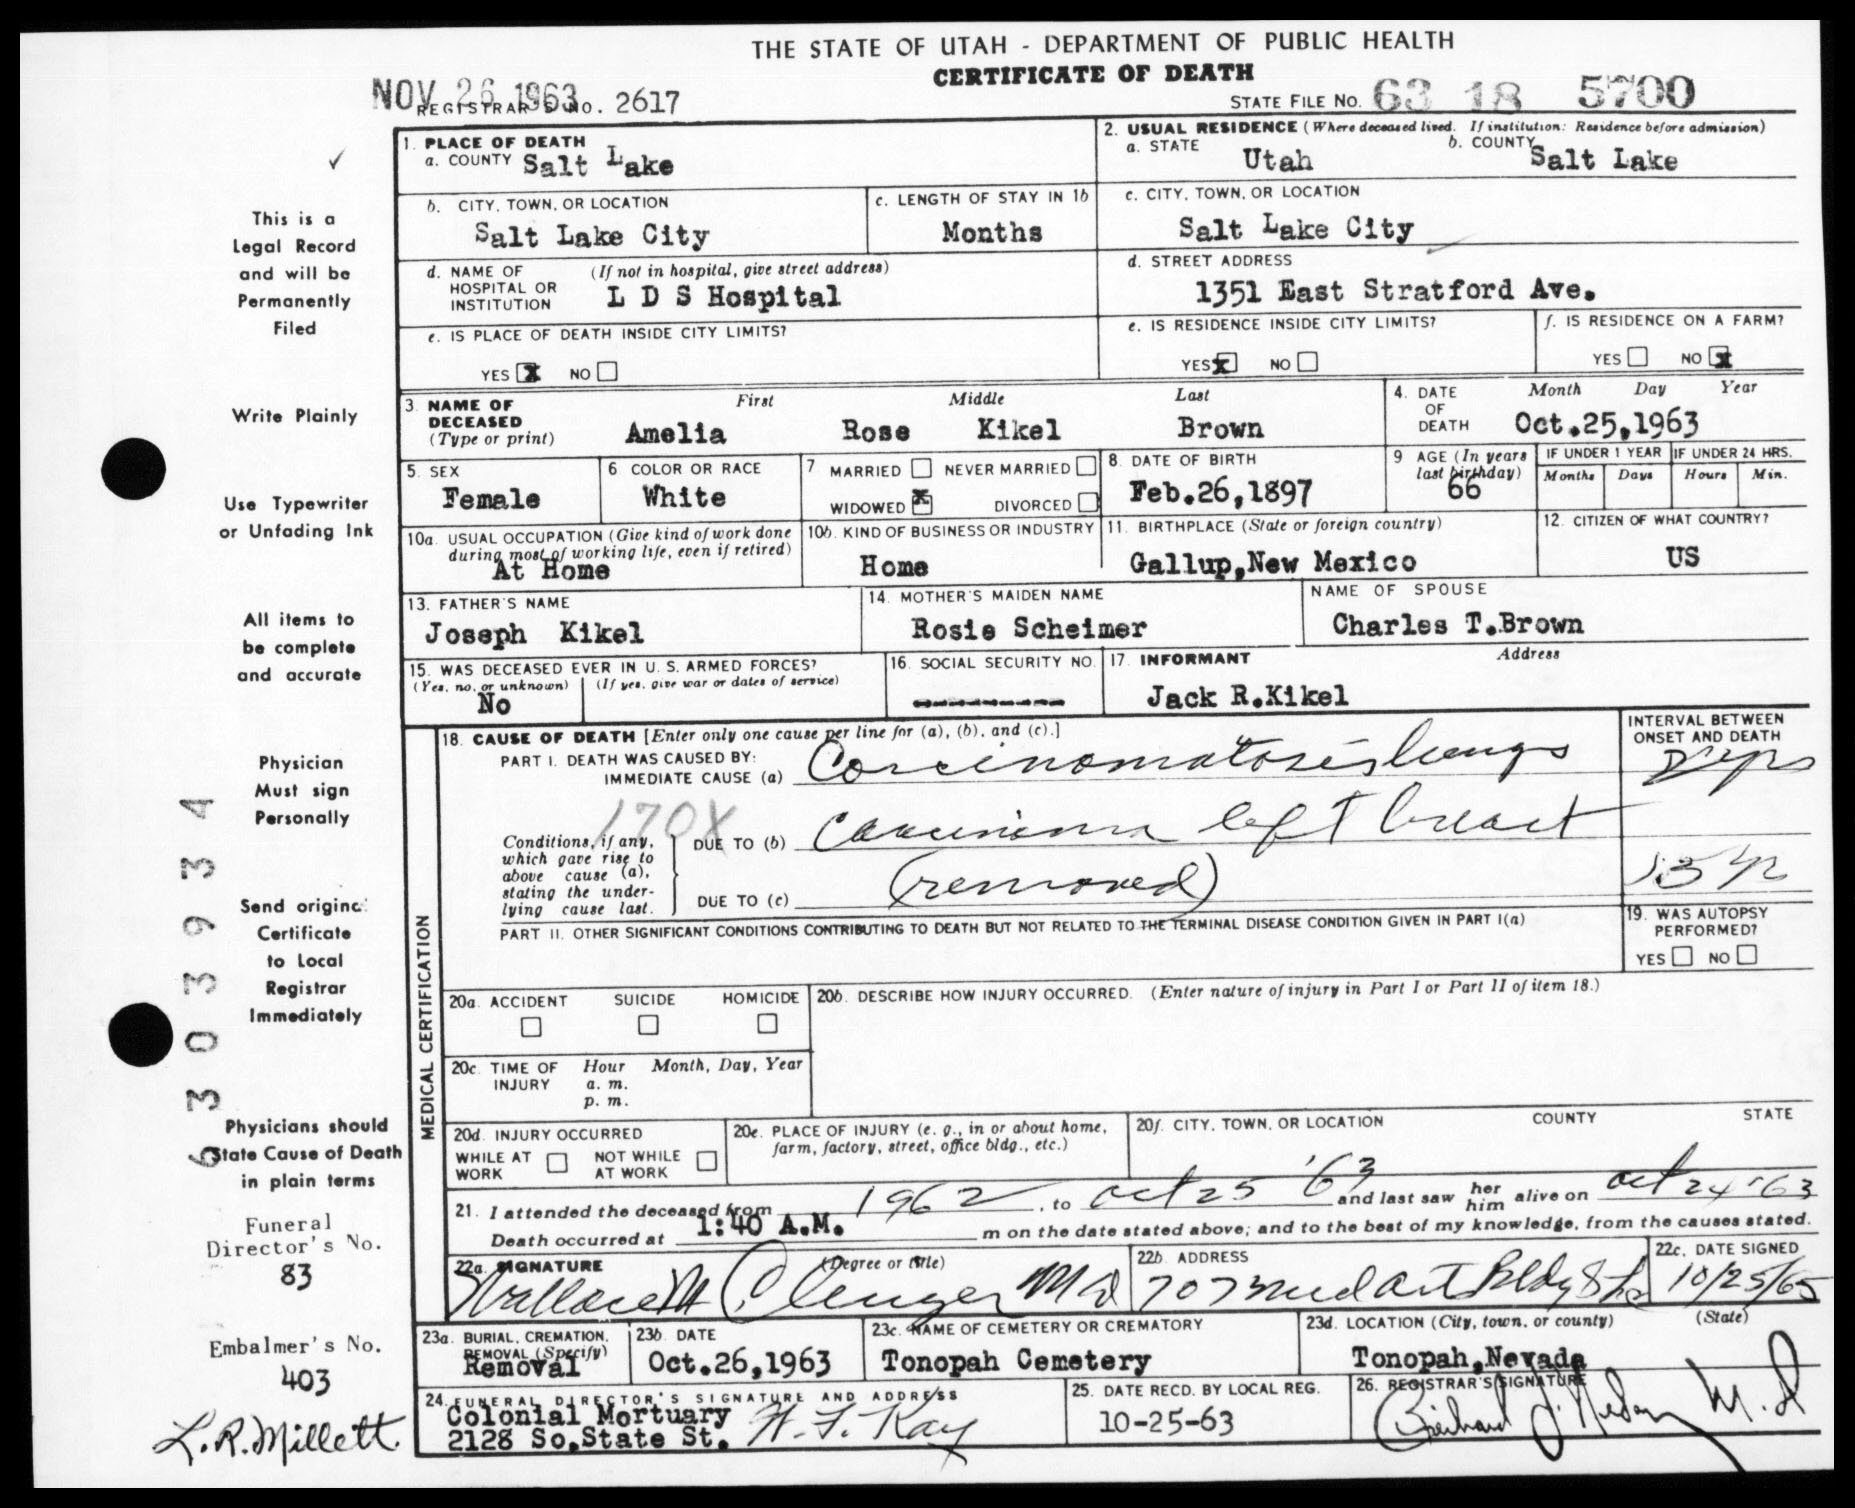 THE STATE OF UTAH - DEPARTMENT OF PUBLIC HEALTH
CERTIFICATE OF DEATH
NOV 26 1963
REGISTRAR'S NO. 2617
STATE FILE NO. 63 18 5700
1. PLACE OF DEATH
a. COUNTY Salt Lake
2. USUAL RESIDENCE (Where deceased lived. If institution: Residence before admission)
a. STATE Utah b. COUNTY Salt Lake
b. CITY, TOWN, OR LOCATION
Salt Lake City
c. LENGTH OF STAY IN 1b
Months
c. CITY, TOWN, OR LOCATION
Salt Lake City
d. NAME OF HOSPITAL OR INSTITUTION (If not in hospital, give street address)
L D S Hospital
d. STREET ADDRESS
1351 East Stratford Ave.
e. IS PLACE OF DEATH INSIDE CITY LIMITS?
YES X NO
e. IS RESIDENCE INSIDE CITY LIMITS?
YES X NO
f. IS RESIDENCE ON A FARM?
YES NO X
3. NAME OF DECEASED (Type or print)
First Middle Last
Amelia Rose Kikel Brown
4. DATE OF DEATH Month Day Year
Oct.25,1963
5. SEX
Female
6 COLOR OR RACE
White
7 MARRIED NEVER MARRIED
WIDOWED X DIVORCED
8. DATE OF BIRTH
Feb.26,1897
9 AGE (In years last birthday)
66
IF UNDER 1 YEAR
Months Days
IF UNDER 24 HRS.
Hours Min.
10a. USUAL OCCUPATION (Give kind of work done during most of working life, even if retired)
At Home
10b. KIND OF BUSINESS OR INDUSTRY
Home
11. BIRTHPLACE (State or foreign country)
Gallup,New Mexico
12. CITIZEN OF WHAT COUNTRY?
US
13. FATHER'S NAME
Joseph Kikel
14. MOTHER'S MAIDEN NAME
Rosie Scheimer
NAME OF SPOUSE
Charles T.Brown
15. WAS DECEASED EVER IN U. S. ARMED FORCES?
(Yes, no, or unknown) (If yes, give war or dates of service)
No
16. SOCIAL SECURITY NO.
------------
17. INFORMANT Address
Jack R.Kikel
MEDICAL CERTIFICATION
18. CAUSE OF DEATH [Enter only one cause per line for (a), (b), and (c).]
PART I. DEATH WAS CAUSED BY:
IMMEDIATE CAUSE (a) Carcinomatosis lungs
INTERVAL BETWEEN ONSET AND DEATH
170X
Conditions, if any, which gave rise to above cause (a), stating the underlying cause last.
DUE TO (b) Carcinoma left breast
DUE TO (c) (removed)
PART II. OTHER SIGNIFICANT CONDITIONS CONTRIBUTING TO DEATH BUT NOT RELATED TO THE TERMINAL DISEASE CONDITION GIVEN IN PART I(a)
19. WAS AUTOPSY PERFORMED?
YES NO
20a. ACCIDENT SUICIDE HOMICIDE
20b. DESCRIBE HOW INJURY OCCURRED. (Enter nature of injury in Part I or Part II of item 18.)
20c. TIME OF INJURY Hour Month, Day, Year
a. m.
p. m.
20d. INJURY OCCURRED
WHILE AT WORK NOT WHILE AT WORK
20e. PLACE OF INJURY (e. g., in or about home, farm, factory, street, office bldg., etc.)
20f. CITY, TOWN, OR LOCATION COUNTY STATE
21. I attended the deceased from 1962, to Oct 25 '63 and last saw her him alive on Oct 24 '63
Death occurred at 1:40 A.M. m on the date stated above; and to the best of my knowledge, from the causes stated.
22a. SIGNATURE (Degree or title)
Wallace M Clenger MD
22b. ADDRESS
707 Med Art Bldg
22c. DATE SIGNED
10/25/63
23a. BURIAL, CREMATION, REMOVAL (Specify)
Removal
23b. DATE
Oct.26,1963
23c. NAME OF CEMETERY OR CREMATORY
Tonopah Cemetery
23d. LOCATION (City, town, or county) (State)
Tonopah,Nevada
24. FUNERAL DIRECTOR'S SIGNATURE AND ADDRESS
Colonial Mortuary
2128 So.State St.
25. DATE RECD. BY LOCAL REG.
10-25-63
26. REGISTRAR'S SIGNATURE
M.D
This is a
Legal Record
and will be
Permanently
Filed
Write Plainly
Use Typewriter
or Unfading Ink
All items to
be complete
and accurate
Physician
Must sign
Personally
Send original
Certificate
to Local
Registrar
Immediately
Physicians should
State Cause of Death
in plain terms
63039334
Funeral
Director's No.
83
Embalmer's No.
403
L.R. Millett